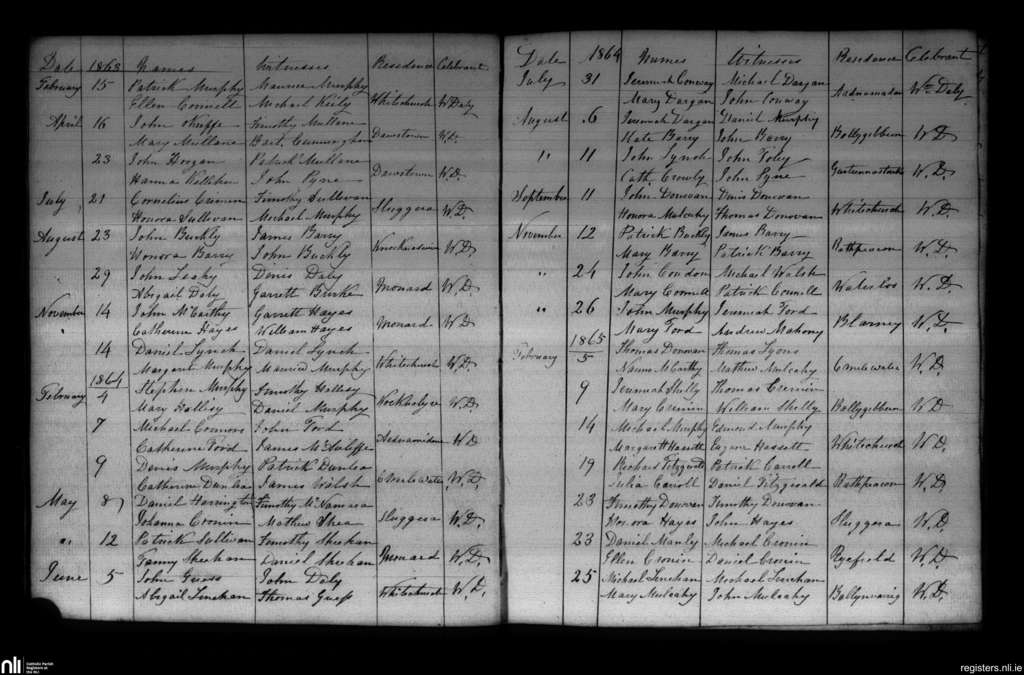 Date 1863 Names Witnesses Residence Celebrant
February 15 Patrick Murphy Maurice Murphy
Ellen Connell Michael Kiely Whitechurch W Daly
April 16 John Timothy Mullane
Mary Mullane Bart. Cunningham Dawstown W.D.
23 John Horgan Patrick Mullane
Hanna Kelliher John Pyne Dawstown W.D.
July 21 Cornelius Timothy Sullivan
Honora Sullivan Michael Murphy Sluggera W.D.
August 23 John Buckly James Barry
Honora Barry John Buckly W.D.
" 29 John Leahy Denis Daly
Abigail Daly Garrett Burke Monard W.D.
November 14 John McCarthy Garrett Hayes
" Catherine Hayes William Hayes Monard W.D
14 Daniel Lynch Daniel Lynch
Margaret Murphy Maurice Murphy Whitechurch W.D.
1864
February 4 Stephen Murphy Timothy Hallisy
Mary Hallisy Daniel Murphy W.D.
7 Michael Connors John Ford
Catherine Ford James McAuliffe W.D
9 Denis Murphy Patrick Dunlea
Catherine Dunlea James Walsh W.D.
May 8 Daniel Harrington Timothy McNamara
Johanna Cronin Mathew Shea Sluggera W.D.
" 12 Patrick Sullivan Timothy Sheehan
Fanny Sheehan Daniel Sheehan Monard W.D.
June 5 John Guess John Daly
Abigail Linehan Thomas Guess Whitechurch W.D.
Date 1864 Names Witnesses Residence Celebrant
July 31 Jeremiah Conway Michael Dargan
Mary Dargan John Conway Wm Daly
August 6 Jeremiah Dargan Daniel Murphy
Kate Barry John Barry Ballygibbon W.D
" 11 John Lynch John Foley
Cath. Crowly John Pyne W.D
September 11 John Donovan Denis Donovan
Honora Mulcahy Thomas Donovan Whitechurch W.D.
November 12 Patrick Buckly James Barry
Mary Barry Patrick Barry Rathpeacon W.D.
" 24 John Condon Michael Walsh
Mary Connell Patrick Connell Waterloo W.D.
" 26 John Murphy Jeremiah Ford
Mary Ford Andrew Mahony Blarney W.D
1865
February 5 Thomas Donovan Thomas Lyons
Nanno McCarthy Mathew Mulcahy 6 mile water W.D
9 Jeremiah Skelly Thomas Cremin
Mary Cremin William Skelly Ballygibbon W.D
14 Michael Murphy Edmond Murphy
Margaret Hassett Eugene Hassett Whitechurch W.D.
19 Richard Fitzgerald Patrick Carroll
Julia Carroll Daniel Fitzgerald Rathpeacon W.D
23 Timothy Donovan Timothy Donovan
Honora Hayes John Hayes Sluggera W.D
23 Daniel Manly Michael Cronin
Ellen Cronin Daniel Cronin Ryefield W.D
25 Michael Linehan Michael Linehan
Mary Mulcahy John Mulcahy W.D.
nli Catholic Parish
Registers at
the NLI
registers.nli.ie